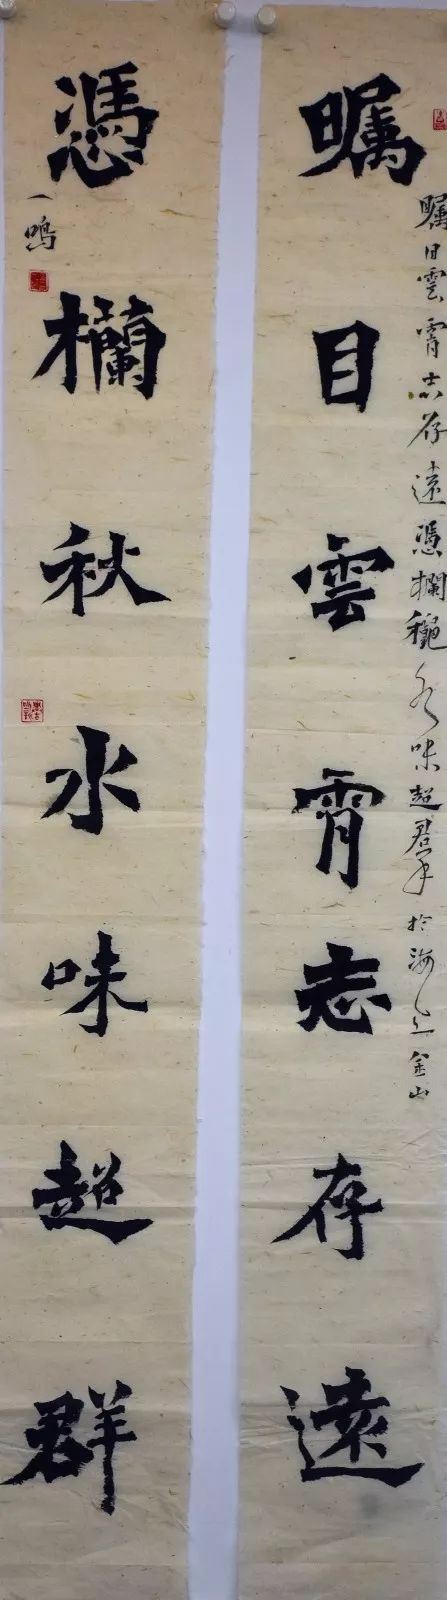 矚目雲霄志存遠
矚目雲霄志存遠憑欄秌水味超羣於海上金山
憑欄秋水味超群
一鳴